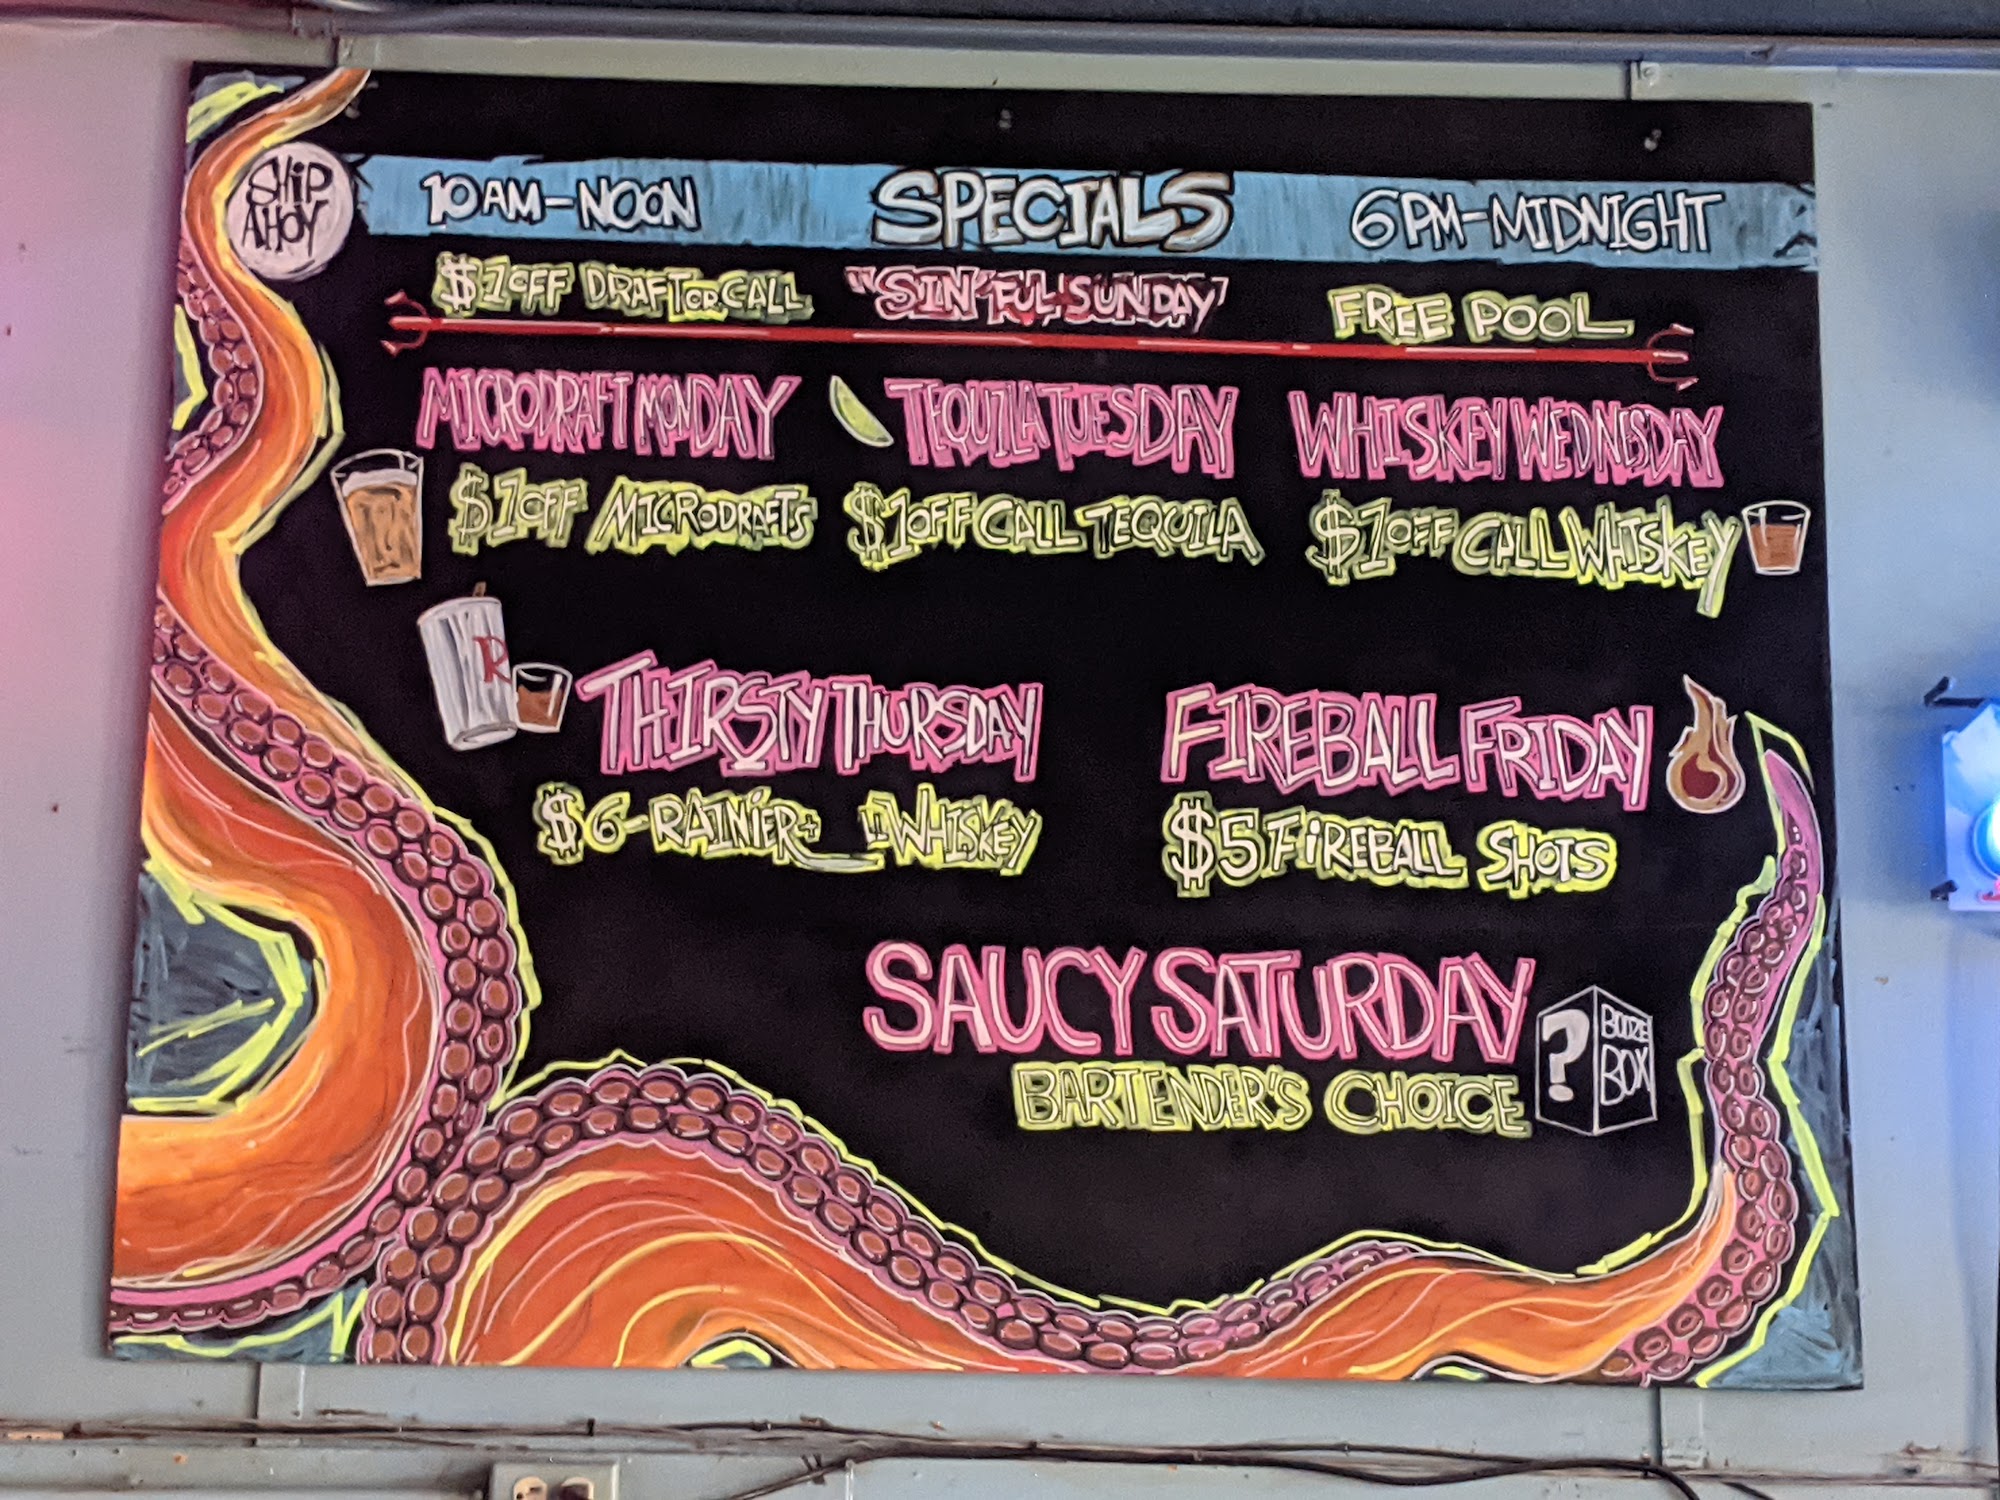 SHIP
AHOY
10AM-NOON SPECIALS 6PM-MIDNIGHT
$1 OFF DRAFT OR CALL "SIN'FUL' SUNDAY" FREE POOL
MICRODRAFT MONDAY TEQUILA TUESDAY WHISKEY WEDNESDAY
$1 OFF MICRODRAFTS $1 OFF CALL TEQUILA $1 OFF CALL WHISKEY
R
THIRSTY THURSDAY FIREBALL FRIDAY
$6-RAINIER+ WHISKEY $5 FIREBALL SHOTS
SAUCY SATURDAY
BARTENDER'S CHOICE
?
BOOZE
BOX